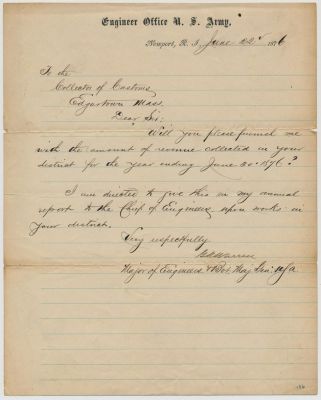 Engineer Office U. S. Army.
Newport, R. I. June 22d 1876
To the
Collector of Customs
Edgartown Mass.
Dear Sir:
Will you please furnish me
with the amount of revenue collected in your
district for the year ending June 30. 1876?
I am directed to give this in my annual
report to the Chief of Engineers upon works in
your district.
Very respectfully
G K Warren
Major of Engineers & Bvt. Maj. Gen.